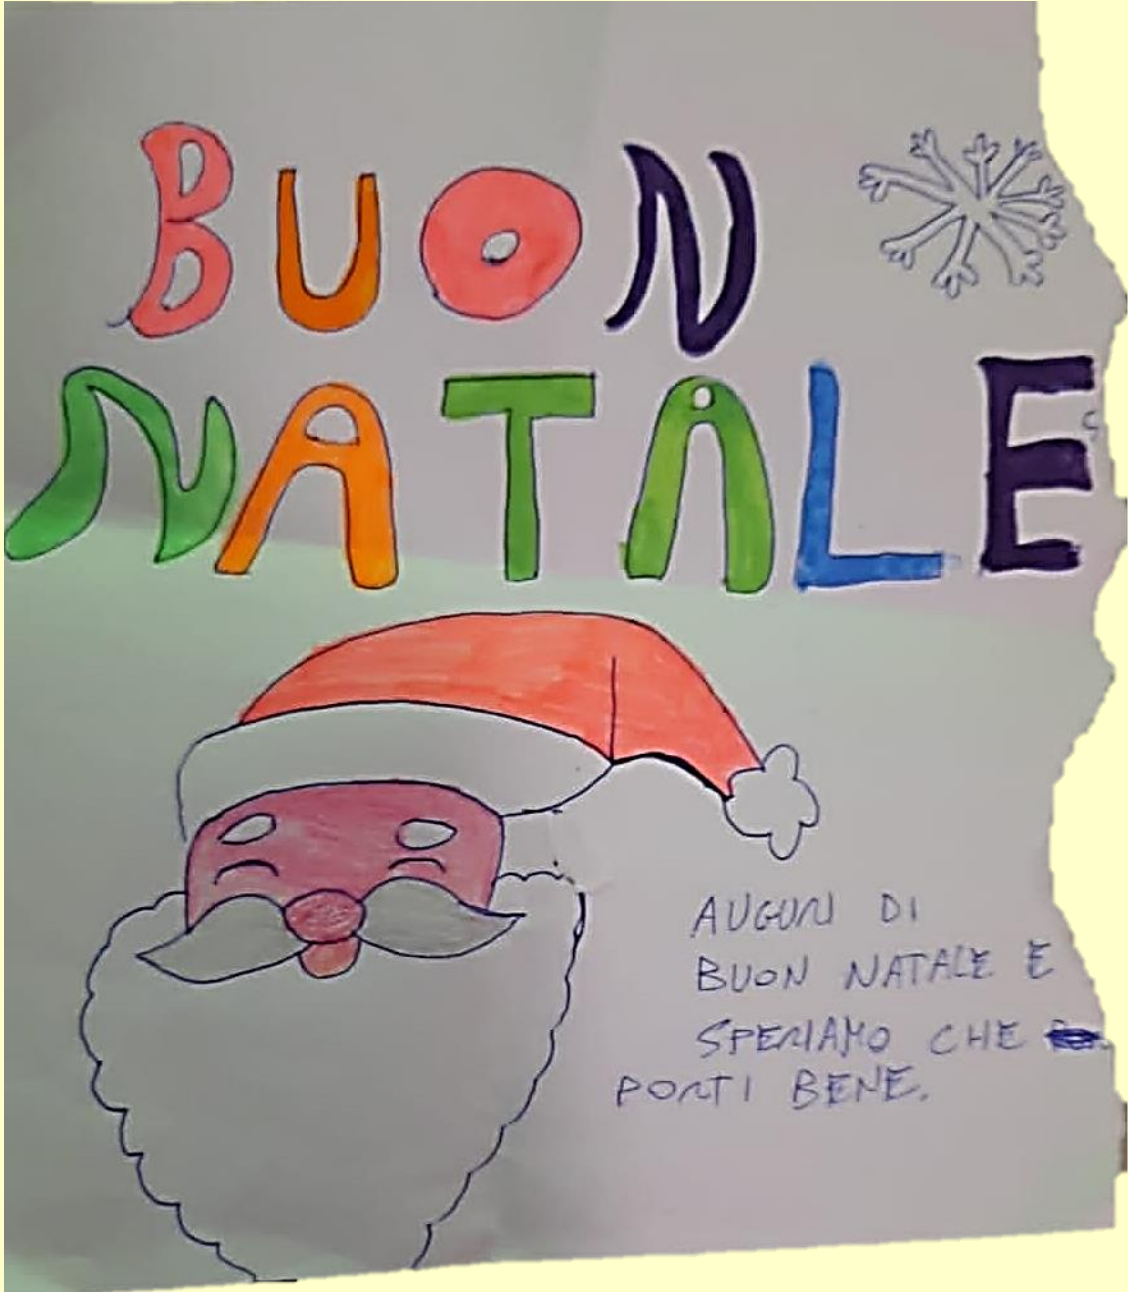 BUON
NATALE
AUGURI DI
BUON NATALE E
SPERIAMO CHE
PORTI BENE.